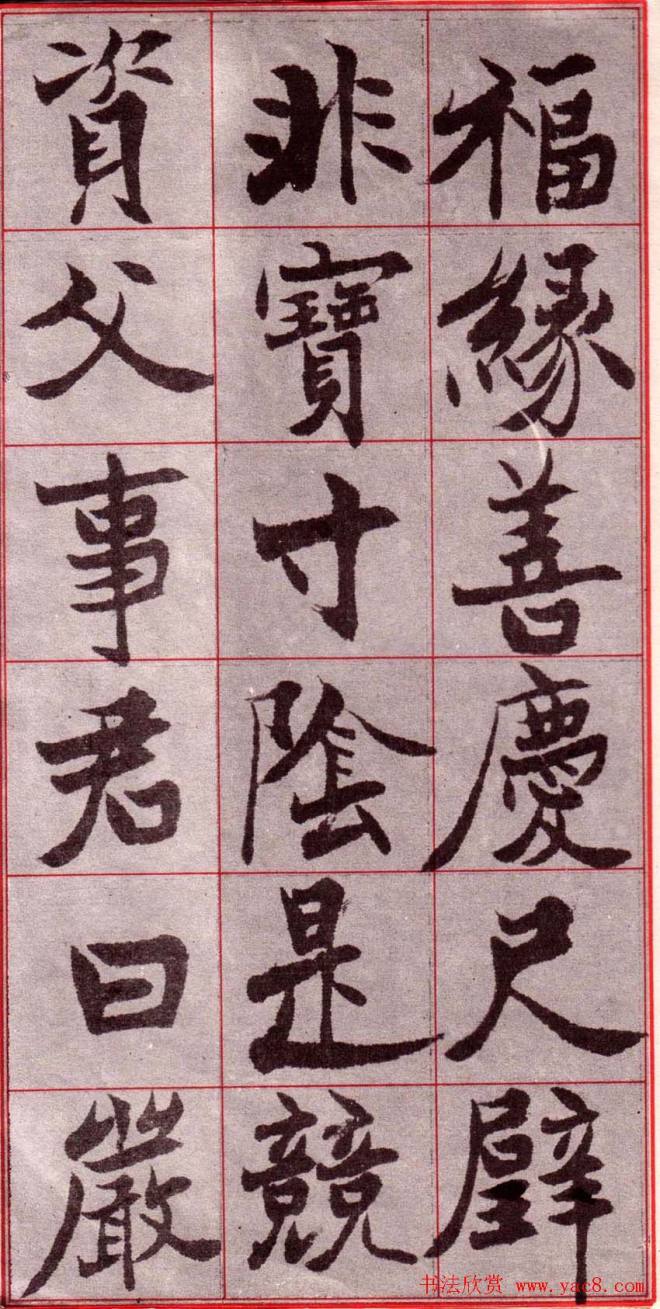 福緣善慶尺璧
非寶寸陰是競
資父事君曰嚴
书法欣赏 www.yac8.com